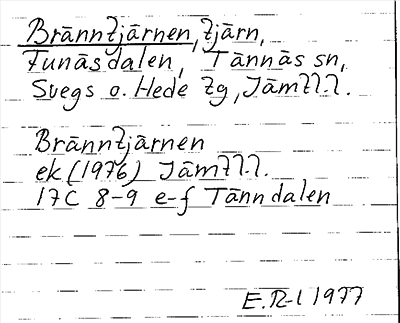 Bränntjärnen, tjärn,
Funäsdalen, Tännäs sn,
Svegs o. Hede tg, Jämtl.l.
Bränntjärnen
ek (1976) Jämtl.l.
17C 8-9 e-f Tänndalen
E.R-l 1977